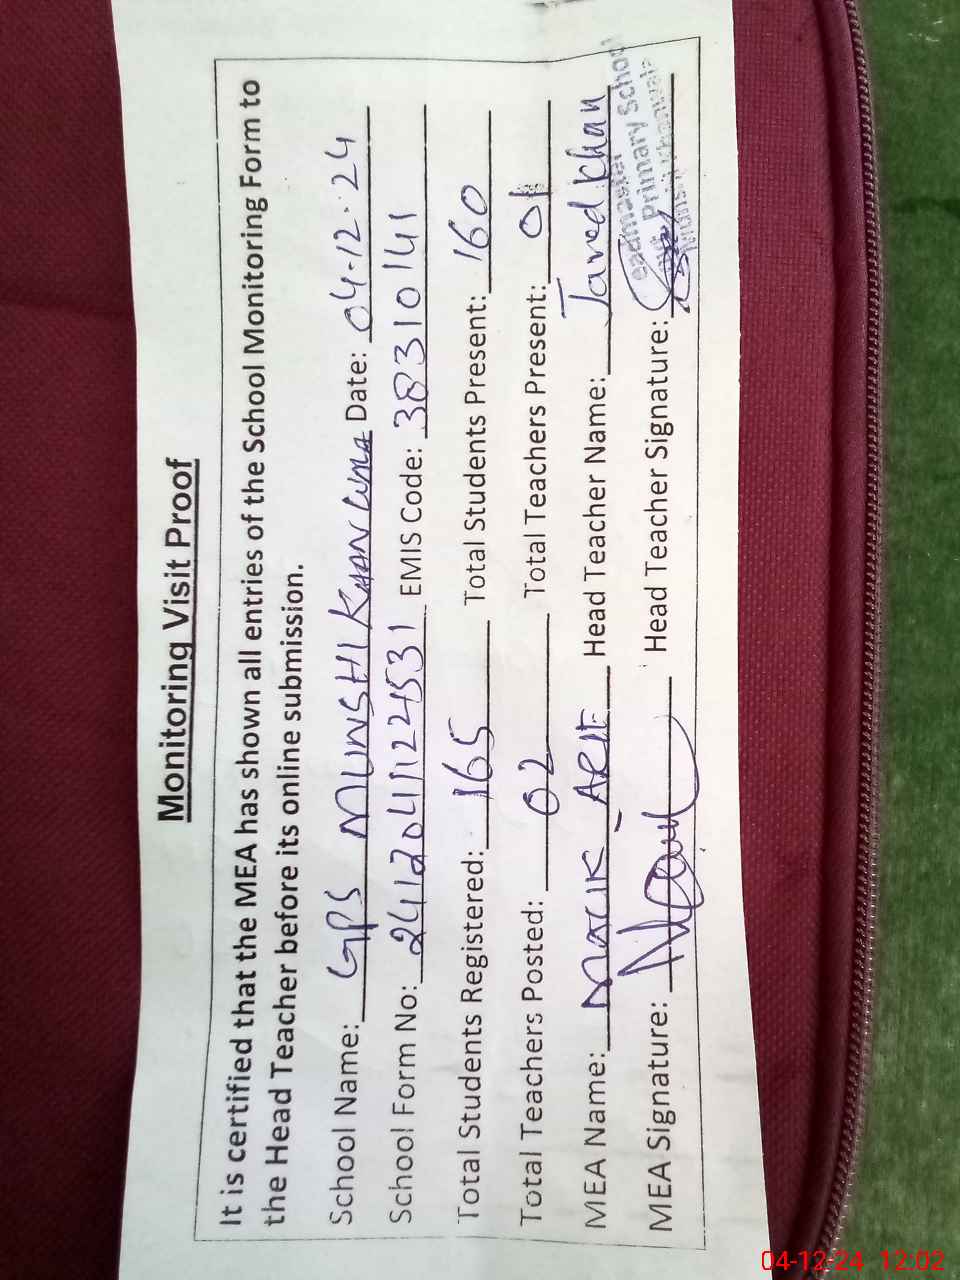 Monitoring Visit Proof
It is certified that the MEA has shown all entries of the School Monitoring Form to
the Head Teacher before its online submission.
School Name: GPS MUNSHI KHAN WMA Date: 04.12.24
School Form No: EMIS Code: 38310141
Total Students Registered: 165 Total Students Present: 160
Total Teachers Posted: 02 Total Teachers Present: 01
MEA Name: MALIK ARIF Head Teacher Name: Javed Khan
MEA Signature: Head Teacher Signature:
eadmaster
Primary School
04-12-24 12:02